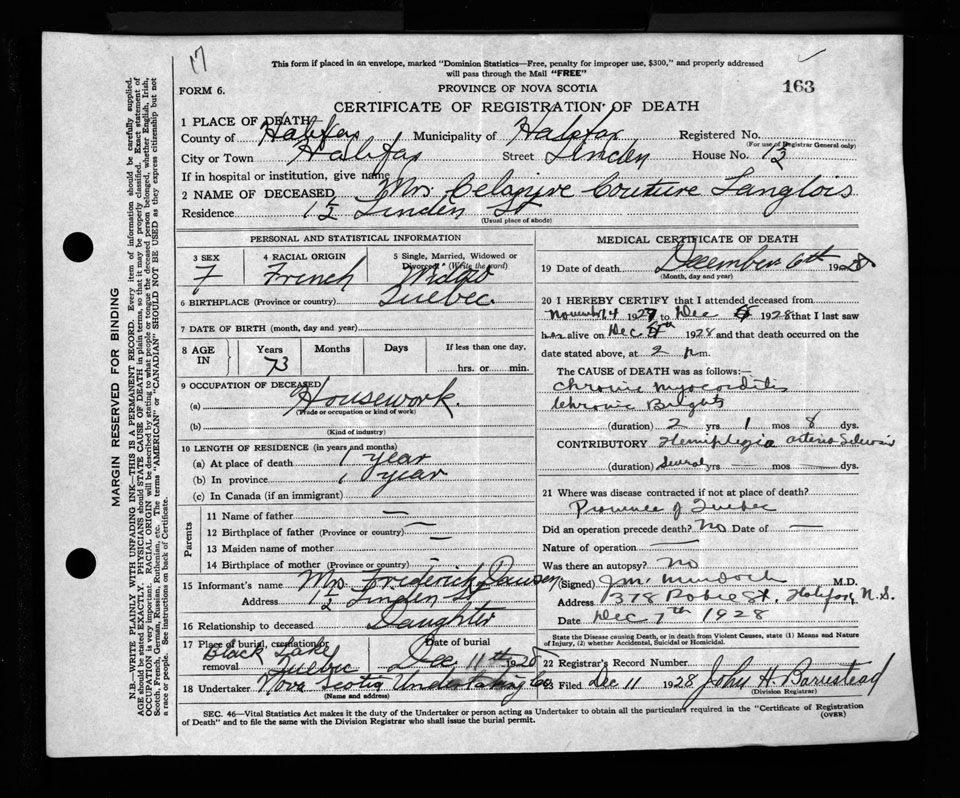 17
This form if placed in an envelope, marked "Dominion Statistics—Free, penalty for improper use, $300," and properly addressed
will pass through the Mail "FREE"
FORM 6.
PROVINCE OF NOVA SCOTIA
163
CERTIFICATE OF REGISTRATION OF DEATH
1 PLACE OF DEATH
County of Halifax Municipality of Halifax Registered No.
(For use of Registrar General only)
City or Town Halifax Street Linden House No. 1½
If in hospital or institution, give name
2 NAME OF DECEASED Mrs. Couture Langlois
Residence 1½ Linden St
(Usual place of abode)
PERSONAL AND STATISTICAL INFORMATION
3 SEX F
4 RACIAL ORIGIN French
5 Single, Married, Widowed or
Divorced (Write the word)
6 BIRTHPLACE (Province or country) Quebec
7 DATE OF BIRTH (month, day and year)
8 AGE IN Years 73 Months Days If less than one day,
hrs. or min.
9 OCCUPATION OF DECEASED
(a) Housework
(Trade or occupation or kind of work)
(b)
(Kind of industry)
10 LENGTH OF RESIDENCE (in years and months)
(a) At place of death 1 year
(b) In province 1 year
(c) In Canada (if an immigrant)
Parents
11 Name of father —
12 Birthplace of father (Province or country) —
13 Maiden name of mother —
14 Birthplace of mother (Province or country) —
15 Informant's name Mrs. Frederick Dawson
Address 1½ Linden St
16 Relationship to deceased Daughter
17 Place of burial, cremation or
removal Black Lake Quebec
Date of burial
Dec 11th 1928
18 Undertaker Nova Scotia Undertaking Co
(Name and address)
MEDICAL CERTIFICATE OF DEATH
19 Date of death December 6th 1928
(Month, day and year)
20 I HEREBY CERTIFY that I attended deceased from
November 4 1927 to Dec 1928 that I last saw
her alive on Dec 1928 and that death occurred on the
date stated above, at 2 p.m.
The CAUSE of DEATH was as follows:—
Chronic Myocarditis
Chronic Brights
(duration) 2 yrs 1 mos 8 dys.
CONTRIBUTORY Hemiplegia
(duration) Several yrs — mos — dys.
21 Where was disease contracted if not at place of death?
Province of Quebec
Did an operation precede death? No Date of —
Nature of operation —
Was there an autopsy? No
(Signed) J.M. Murdoch M.D.
Address 378 Robie St. Halifax, N.S.
Date Dec 7th 1928
State the Disease causing Death, or in death from Violent Causes, state (1) Means and Nature
of Injury, (2) whether Accidental, Suicidal or Homicidal.
22 Registrar's Record Number
23 Filed Dec 11 1928 John H. Barnstead
(Division Registrar)
SEC. 46—Vital Statistics Act makes it the duty of the Undertaker or person acting as Undertaker to obtain all the particulars required in the "Certificate of Registration
of Death" and to file the same with the Division Registrar who shall issue the burial permit.
(OVER)
MARGIN RESERVED FOR BINDING
N.B.—WRITE PLAINLY WITH UNFADING INK—THIS IS A PERMANENT RECORD. Every item of information should be carefully supplied.
AGE should be stated EXACTLY. PHYSICIANS should STATE CAUSE OF DEATH in plain terms, so that it may be properly classified. Exact statement of
OCCUPATION is very important. RACIAL ORIGIN will be described by stating to what people or tongue the deceased person belonged, whether English, Irish,
Scotch, French, German, Russian, Ruthenian, etc. The terms "AMERICAN" or "CANADIAN" SHOULD NOT BE USED as they express citizenship but not
a race or people. See instructions on back of Certificate.